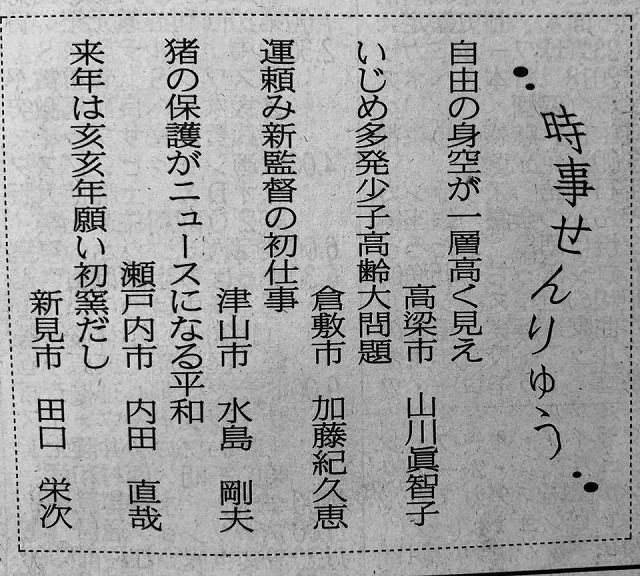 時事せんりゅう
自由の身空が一層高く見え
高梁市 山川眞智子
いじめ多発少子高齢大問題
倉敷市 加藤紀久恵
運頼み新監督の初仕事
津山市 水島 剛夫
猪の保護がニュースになる平和
瀬戸内市 内田 直哉
来年は亥亥年願い初窯だし
新見市 田口 栄次